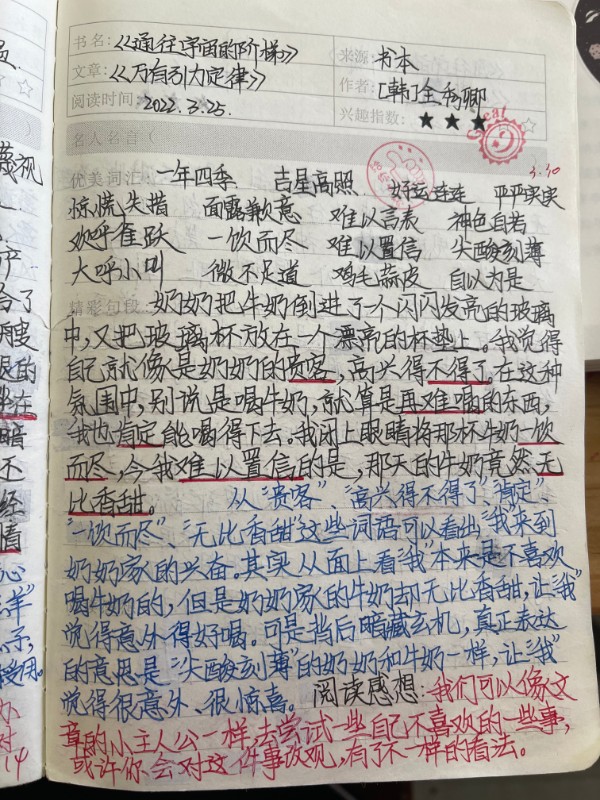 书名:《通往宇宙的阶梯》 来源:书本
文章:《万有引力定律》 作者:[韩]全秀聊
阅读时间:2022.3.25. 兴趣指数:★★★☆
Great
名人名言(
3.30
优美词汇:一年四季 吉星高照 好运连连 严严实实
惊慌失措 面露歉意 难以言表 神色自若
欢呼雀跃 一饮而尽 难以置信 尖酸刻薄
大呼小叫 微不足道 鸡毛蒜皮 自以为是
精彩句段:奶奶把牛奶倒进了个闪闪发亮的玻璃
中,又把玻璃杯放在一个漂亮的杯垫上。我觉得
自己就像是奶奶的贵客,高兴得不得了。在这种
氛围中,别说是喝牛奶,就算是再难喝的东西,
我也肯定能喝得下去。我闭上眼睛将那杯牛奶一饮
而尽,令我难以置信的是,那天的牛奶竟然无
比香甜。 从“贵客”、“高兴得不得了”“肯定”
“一饮而尽”、“无比香甜”这些词语可以看出“我”来到
奶奶家的兴奋。其实从面上看“我”本来是不喜欢
喝牛奶的,但是奶奶家的牛奶却无比香甜,让“我”
觉得意外得好喝。可是背后暗藏玄机,真正表达
的意思是“尖酸刻薄”的奶奶和牛奶一样,让“我”
觉得很意外、很惊喜。 阅读感想:我们可以像文
章的小主人公一样,去尝试一些自己不喜欢的一些事,
或许你会对这件事改观,有了不一样的看法。